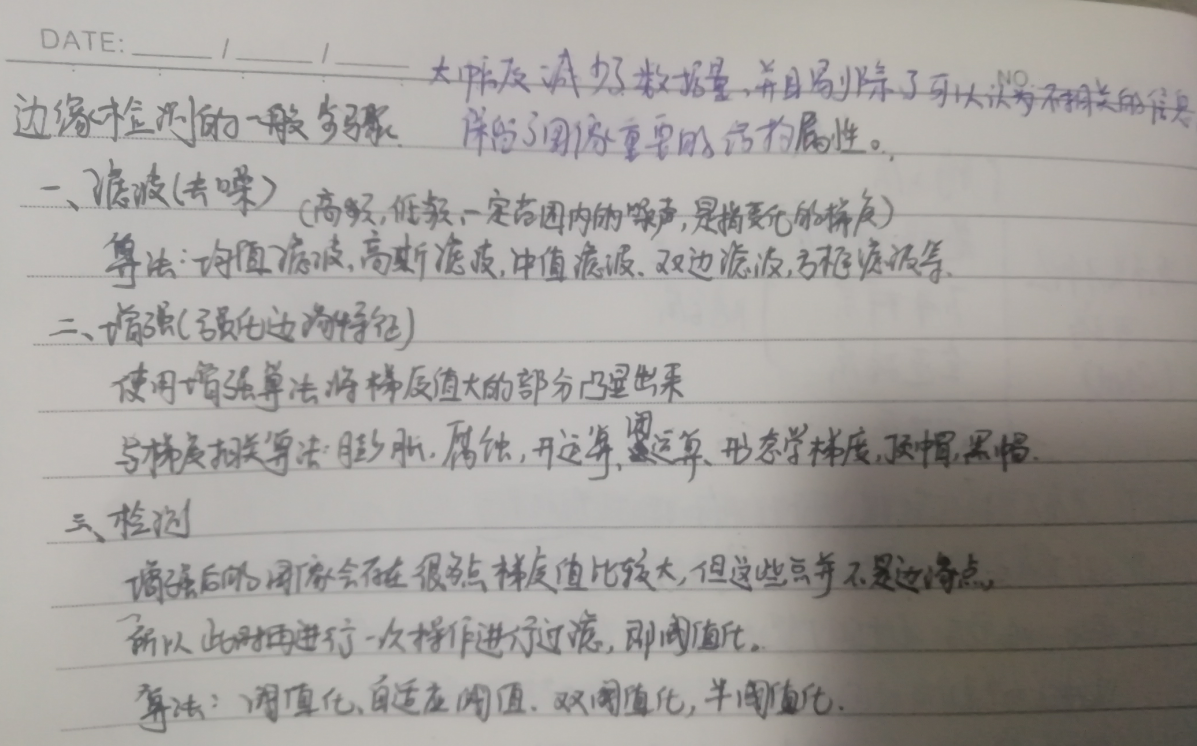 DATE: ____ / ____ / ____
NO.
大幅度减少了数据量,并且剔除了可以认为不相关的信息
边缘检测的一般步骤. 保留了图像重要的结构属性。
一、滤波(去噪) (高频,低频,一定范围内的噪声,是指变化的梯度)
算法:均值滤波,高斯滤波,中值滤波、双边滤波,方框滤波等.
二、增强(强化边缘特征)
使用增强算法将梯度值大的部分凸显出来
与梯度相关算法:膨胀.腐蚀,开运算、闭运算、形态学梯度,顶帽,黑帽.
三、检测
增强后的图像会存在很多点梯度值比较大,但这些点并不是边缘点,
所以此时再进行一次操作进行过滤,即阈值化。
算法:阈值化、自适应阈值.双阈值化,半阈值化.